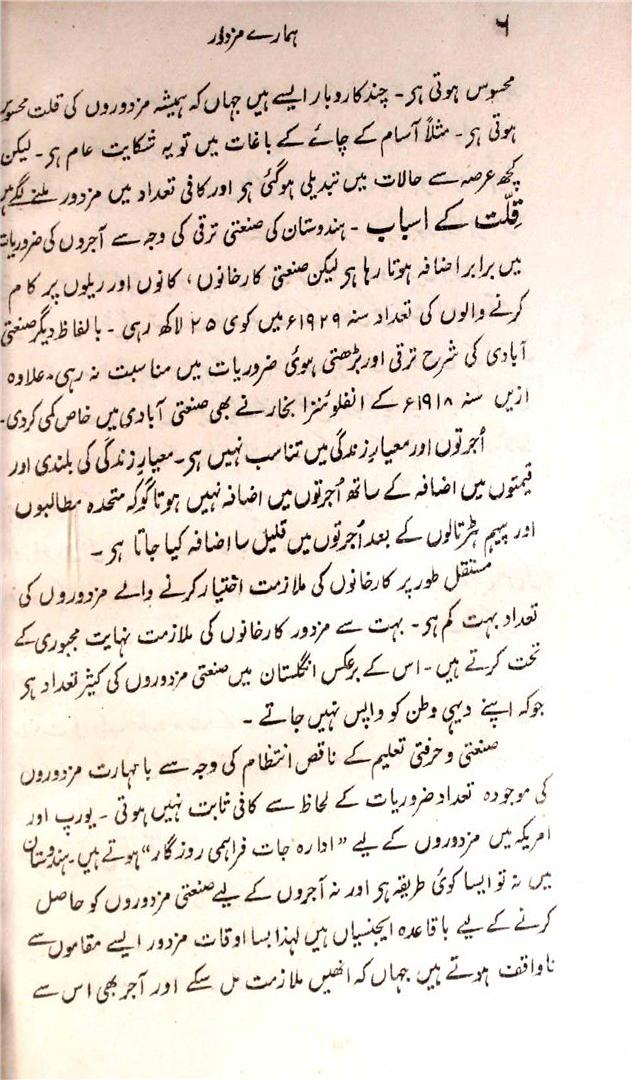 ۶
ہمارے مزدور
محسوس ہوتی ہر۔ چند کاروبار ایسے ہیں جہاں کہ ہمیشہ مزدوروں کی قلت محسوس
ہوتی ہر۔ مثلاً آسام کے چائے کے باغات میں تو یہ شکایت عام ہر۔ لیکن
کچھ عرصہ سے حالات میں تبدیلی ہوگئی ہر اور کافی تعداد میں مزدور ملنے لگے ہیں
قِلّت کے اسباب ۔ ہندوستان کی صنعتی ترقی کی وجہ سے آجروں کی ضروریات
میں برابر اضافہ ہوتا رہا ہر لیکن صنعتی کارخانوں، کانوں اور ریلوں پر کام
کرنے والوں کی تعداد سنہ ۱۹۲۹ء میں کوی ۲۵ لاکھ رہی ۔ بالفاظ دیگر صنعتی
آبادی کی شرح ترقی اور بڑھتی ہوئی ضروریات میں مناسبت نہ رہی۔ علاوہ
ازیں سنہ ۱۹۱۸ء کے انفلوئنزا بخار نے بھی صنعتی آبادی میں خاص کمی کردی۔
اُجرتوں اور معیارِ زندگی میں تناسب نہیں ہر۔ معیارِ زندگی کی بلندی اور
قیمتوں میں اضافہ کے ساتھ اُجرتوں میں اضافہ نہیں ہوتا گو کہ متحدہ مطالبوں
اور پیہم ہڑتالوں کے بعد اُجرتوں میں قلیل سا اضافہ کیا جاتا ہر ۔
مستقل طور پر کارخانوں کی ملازمت اختیار کرنے والے مزدوروں کی
تعداد بہت کم ہر۔ بہت سے مزدور کارخانوں کی ملازمت نہایت مجبوری کے
تحت کرتے ہیں۔ اس کے برعکس انگلستان میں صنعتی مزدوروں کی کثیر تعداد ہر
جو کہ اپنے دیہی وطن کو واپس نہیں جاتے ۔
صنعتی و حرفتی تعلیم کے ناقص انتظام کی وجہ سے با مہارت مزدوروں
کی موجودہ تعداد ضروریات کے لحاظ سے کافی ثابت نہیں ہوتی ۔ یورپ اور
امریکہ میں مزدوروں کے لیے ”ادارہ جات فراہمی روزگار“ ہوتے ہیں۔ ہندوستان
میں نہ تو ایسا کوئی طریقہ ہر اور نہ آجروں کے لیے صنعتی مزدوروں کو حاصل
کرنے کے لیے باقاعدہ ایجنسیاں ہیں لہٰذا بسا اوقات مزدور ایسے مقاموں سے
ناواقف ہوتے ہیں جہاں کہ انھیں ملازمت مل سکے اور آجر بھی اس سے